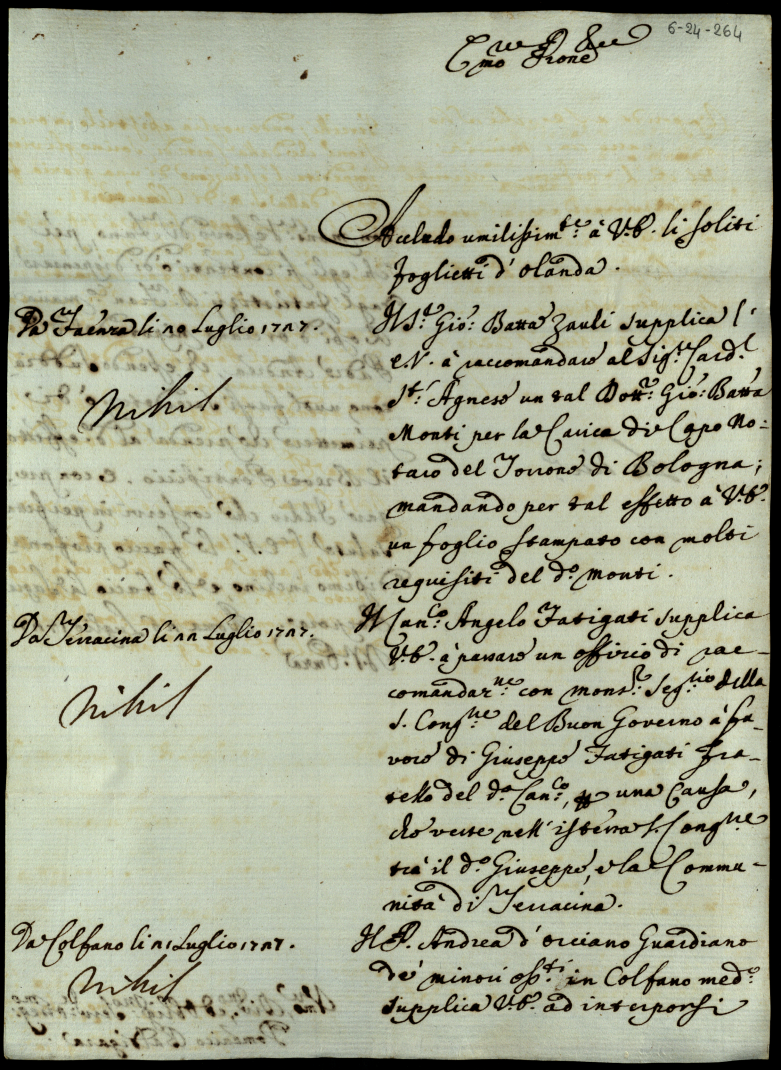 6-24-264
Em.mo e R.mo Prone
Accludo umilissim.te à V.E. li soliti
foglietti d'olanda.
Da Faenza li 20 Luglio 1727.
Il S.r Gio: Batta Zauli supplica l'
E.V. à raccomandare al Sig.r Card.l
S.t Agnese un tal Dott.r Gio: Batta
Monti per la Carica di Capo No-
taro del Torrone di Bologna;
mandando per tal effetto à V.E.
un foglio stampato con molti
requisiti del d.o monti.
nihil
Da Terracina li 22 Luglio 1727.
Il Can.co Angelo Fatigati supplica
V.E. à passare un officio di rac-
comandaz.ne con mons.r Seg.rio della
S. Cong.ne del Buon Governo à fa-
vore di Giuseppe Fatigati fra-
tello del d.o Can.co, per una Causa,
che verte nell'istessa S. Cong.ne
trà il d.o Giuseppe, e la Commu-
nità di Terracina.
nihil
Da Colfano li 21 Luglio 1727.
Il P. Andrea d'Orciano Guardiano
de' minori oss.ti in Colfano med.o
supplica V.E. ad interporsi
nihil